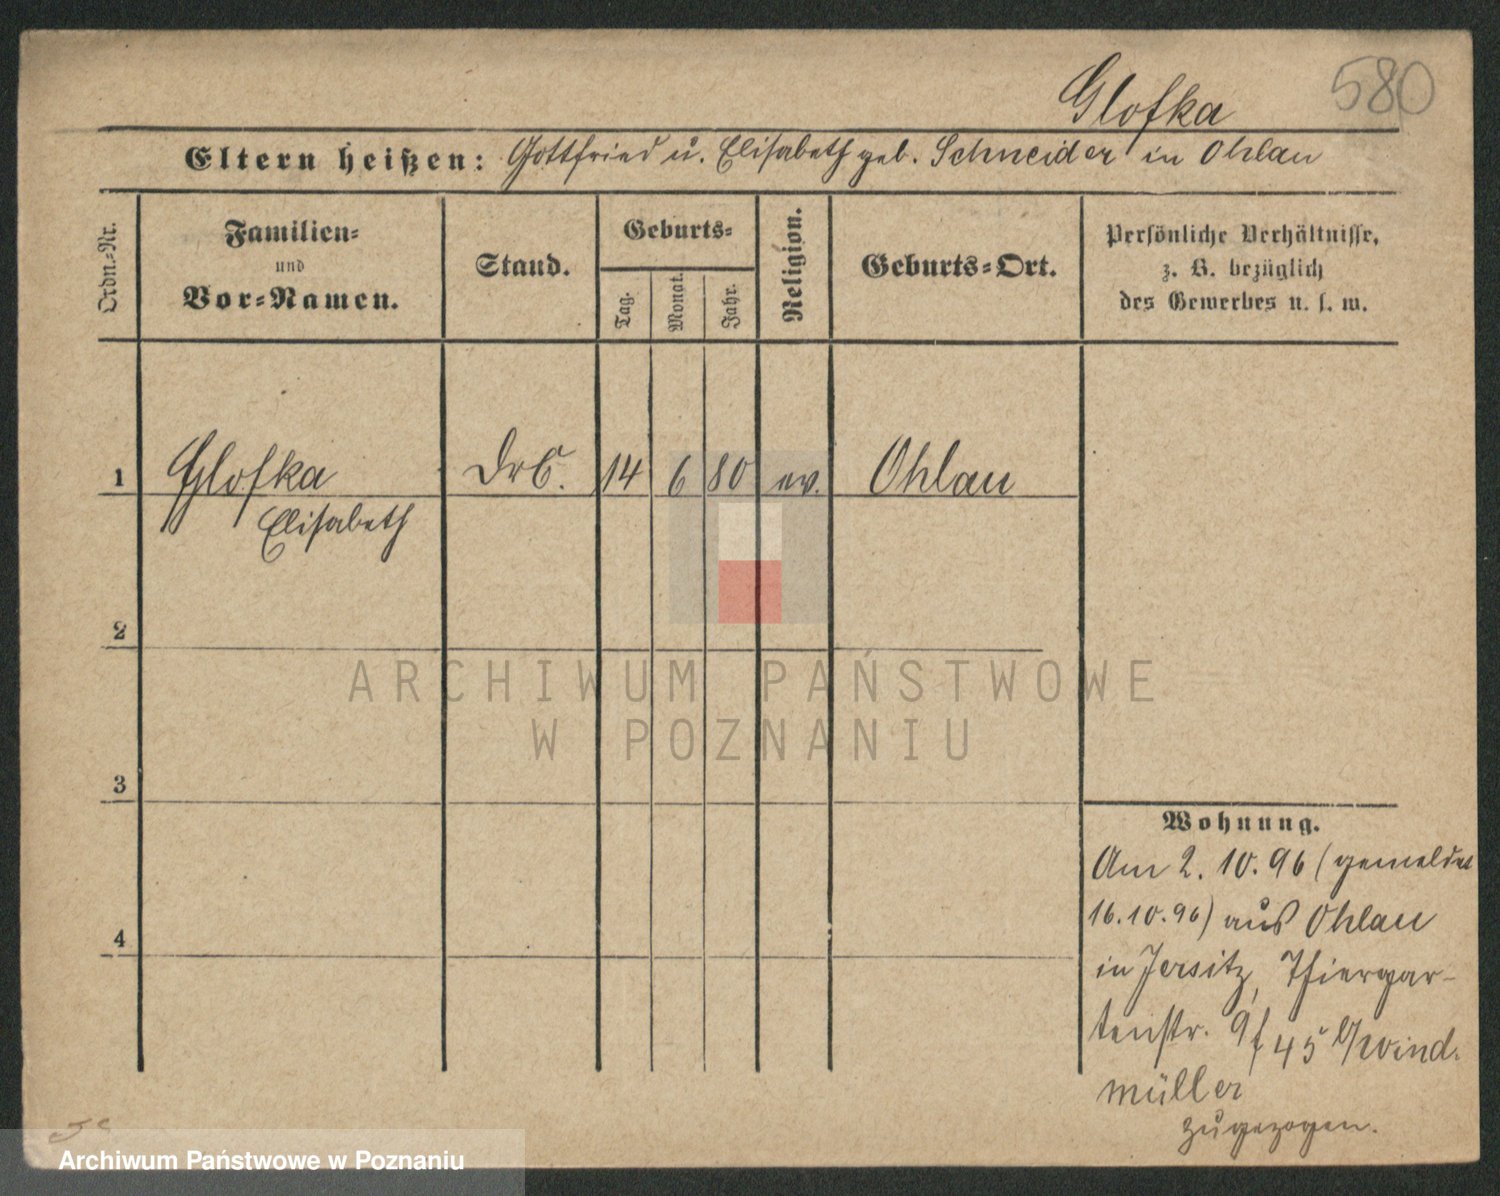 Glofka
580
Eltern heißen: Gottfried u. Elisabeth geb. Schneider in Ohlau
Ordn.-Nr.
Familien-
und
Vor-Namen.
Stand.
Geburts-
Tag.
Monat.
Jahr.
Religion.
Geburts-Ort.
Persönliche Verhältnisse,
z. B. bezüglich
des Gewerbes u. s. w.
1 Glofka 14 6 80 ev. Ohlau
Elisabeth
2
ARCHIWUM PAŃSTWOWE
W POZNANIU
3
4
Wohnung.
Am 2. 10. 96 (gemeldet
16.10.96) aus Ohlau
in Jersitz, Thiergar-
tenstr. 45
müller
zugezogen.
Archiwum Państwowe w Poznaniu